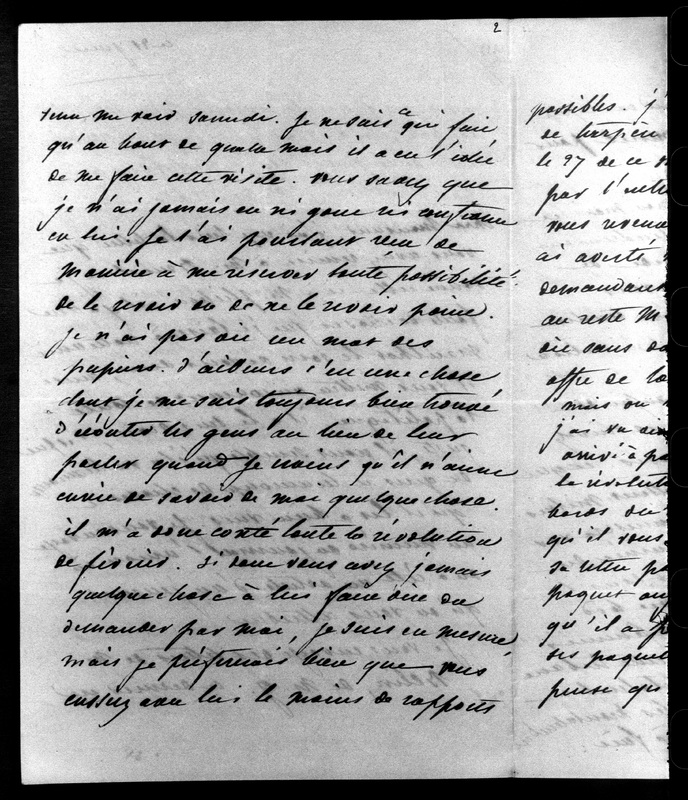 2
venu me voir samedi. Je ne sais ce qui fait
qu'au bout de quatre mois il a eu l'idée
de me faire cette visite. vous savez que
je n'ai jamais eu ni gout ni confiance
en lui. Je l'ai pourtant reçu de
manière à me réserver toute possibilité
de le revoir ou de ne le revoir point.
Je n'ai pas dit un mot des
papiers. d'ailleurs c'est une chose
dont je me suis toujours bien trouvé
d'écouter les gens au lieu de leur
parler quand je crains qu'il n'aient
envie de savoir de moi quelque chose.
il m'a donc conté toute la révolution
de février. Si donc vous avez jamais
quelque chose à lui faire dire ou
demander par moi, je suis en mesure
mais je préférerais bien que vous
eussiez avec lui le moins de rapports
possibles. j'
de
le 27 de ce
par l'
vous
ai averti
demandant
au reste M
sans
offre de
mais on
j'ai vu
arrivé à
la révolut
bords du
qu'il vous
sa lettre
paquet
qu'il a
ses paquet
pense qu